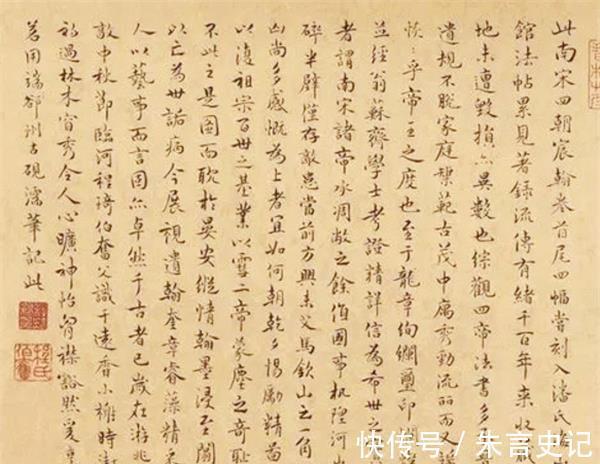 此南宋四朝宸翰卷首尾四幅嘗刻入潘氏
館法帖累見著錄流傳有緒千百年來收
地未遭毀損亦異數也綜觀四帝法書多
遺規不脫家庭榘範古茂中寓秀勁流麗而又
恢恢乎帝王之度也至于龍章絢斕璽印
益經翁蘇齋學士考證精詳信為希世之
者謂南宋諸帝承凋敝之餘值國事杌隉河
碎半壁僅存敵患當前方興未艾馬欽山之一角
凶尚多感慨為上者宜如何朝乾夕惕勵精圖
以復祖宗百世之基業以雪二帝蒙塵之奇恥
不此之是圖而耽於晏安縱情翰墨浸至闇
以亡為世詬病今展視遺翰奎章睿藻精采
人以藝事而言固亦卓然千古者已歲在游兆
敦中秋節臨河程琦伯奮父識于遠香小榭時
初過林木窅秀令人心曠神怡胸襟豁然爰
茗用端州古硯濡筆記此
快传号／朱言史记